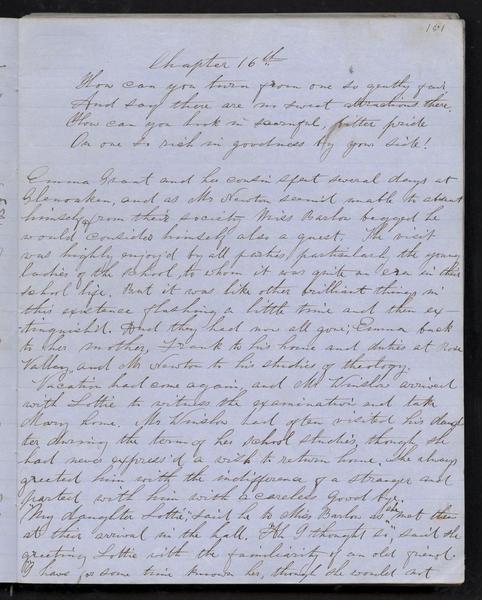 161
Chapter 16th
How can you turn from one so gently fair
And say there are no sweet attractions there.
How can you look in scornful, bitter pride
On one so rich in goodness by your side!
Emma Grant and her cousin spent several days at
Glenoaken, and as Mr Newton seemed unable to absent
himself from their society, Miss Barlow begged he
would consider himself also a guest. The visit
was highly enjoy'd by all parties, particularly the young
ladies of the school, to whom it was quite an era in their
school life. But it was like other brilliant things in
this existence flashing a little time and then ex-
tinguish'd. And they had now all gone; Emma back
to her mother, Frank to his home and duties at Rose
Valley, and Mr Newton to his studies of theology.
Vacation had come again, and Mr Winslow arrived
with Lottie to witness the examination and take
Mary home. Mr Winslow had often visited his daugh
ter during the term of her school studies, though she
had never express'd a wish to return home. She always
greeted him with the indifference of a stranger and
parted with him with a careless good bye.
"My daughter Lottie," said he to Miss Barlow as she met them
at their arrival in the hall. "Ah I thought so," said she
greeting Lottie with the familiarity of an old friend.
"I have for some time known her, though she would not